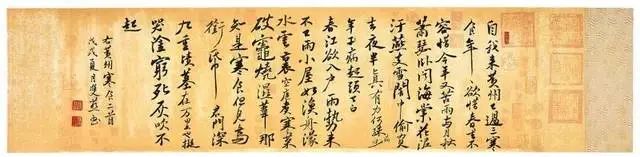 自我來黃州已過三寒
食年〻欲惜春春去不
容惜今年又苦雨兩月秋
蕭瑟卧聞海棠花泥
汙燕支雪闇中偷負
去夜半真有力何殊
年子病起頭已白
春江欲入户雨勢來
不已雨小屋如漁舟濛
水雲裏空庖煮寒菜
破竈燒濕葦那
知是寒食但見烏
銜帋君門深
九重墳墓在万里也擬
哭塗窮死灰吹不
起
右黃州寒食二首
戊戌夏月